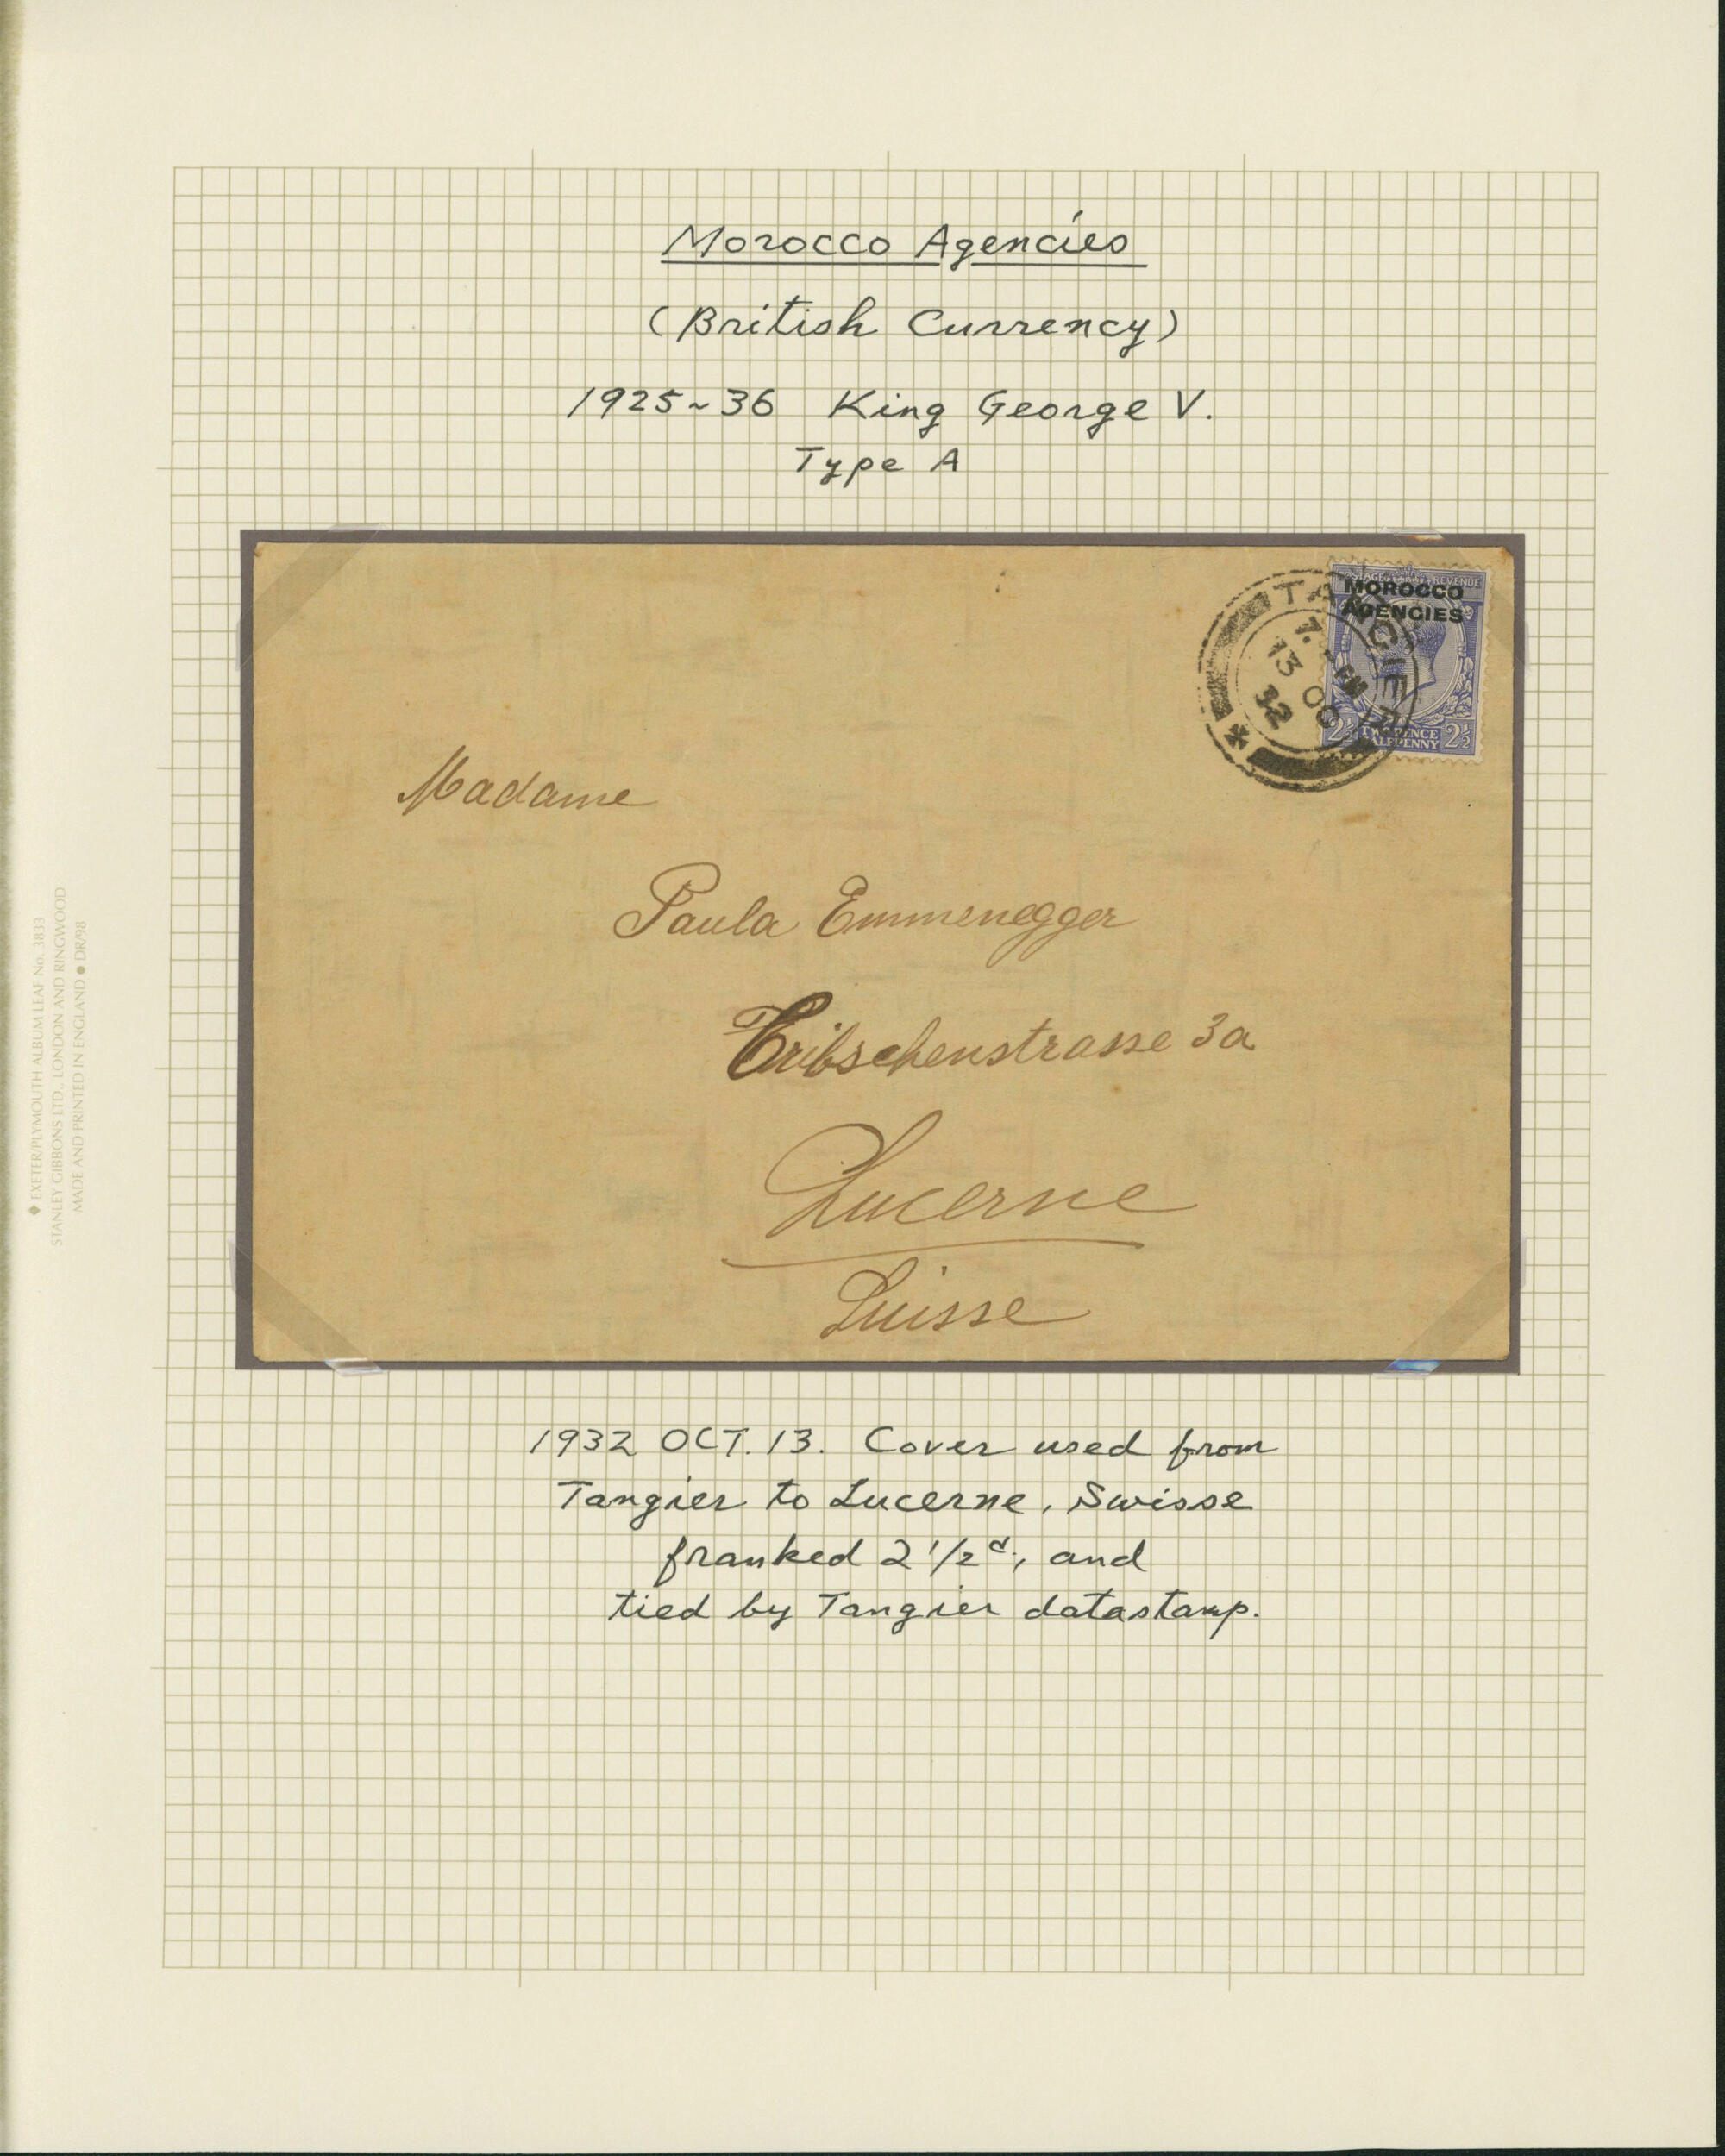 Morocco Agencies
(British Currency)
1925~36 King George V.
Type A
POSTAGE REVENUE
MOROCCO
AGENCIES
TANGIER
7. PM
13 OC
32
2½ TWOPENCE HALFPENNY 2½
Madame
Paula Emmenegger
Tribschenstrasse 3a
Lucerne
Suisse
1932 OCT. 13. Cover used from
Tangier to Lucerne, Swisse
franked 2 1/2 d., and
tied by Tangier datastamp.
◆ EXETER/PLYMOUTH ALBUM LEAF No. 3833
STANLEY GIBBONS LTD., LONDON AND RINGWOOD
MADE AND PRINTED IN ENGLAND ● DR/98